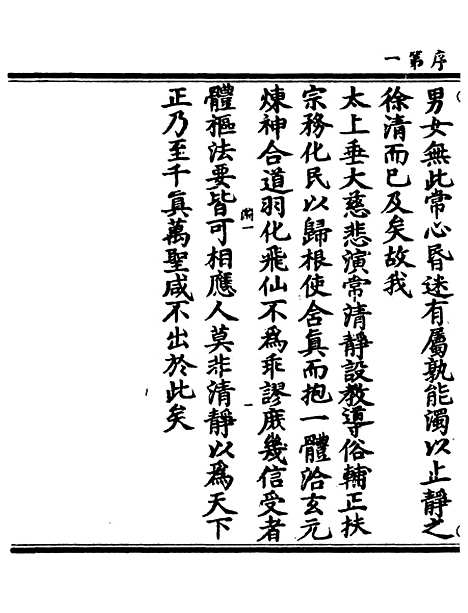 序第一
男女無此常心昏迷有屬孰能濁以止靜之
徐清而已及矣故我
太上垂大慈悲演常清靜設教導俗輔正扶
宗務化民以歸根使含眞而抱一體洽玄元
煉神合道羽化飛仙不爲乖謬庶幾信受者
體樞法要皆可相應人莫非清靜以爲天下
正乃至千眞萬聖咸不出於此矣